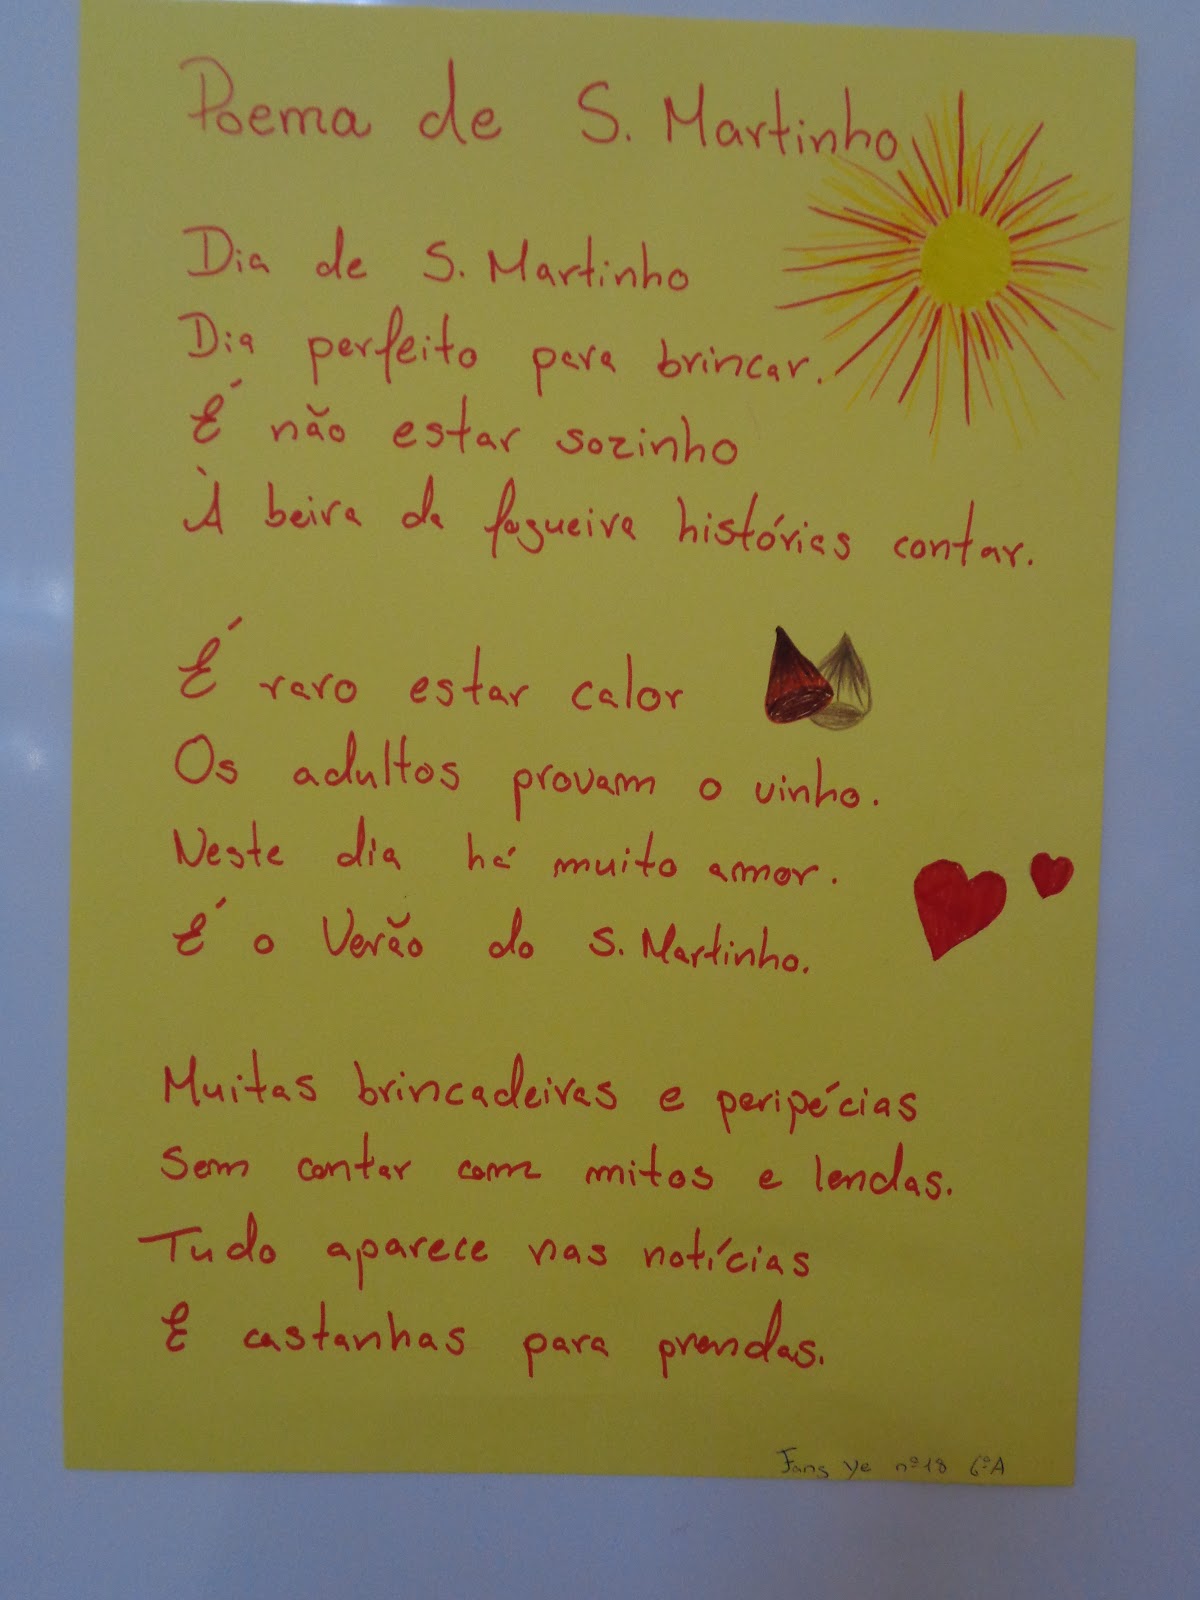 Poema de S. Martinho
Dia de S. Martinho
Dia perfeito para brincar.
É não estar sozinho
À beira da fogueira histórias contar.
É raro estar calor
Os adultos provam o vinho.
Neste dia há muito amor.
É o Verão do S. Martinho.
Muitas brincadeiras e peripécias
Sem contar com mitos e lendas.
Tudo aparece nas notícias
E castanhas para prendas.
Fang Ye nº18 6ºA